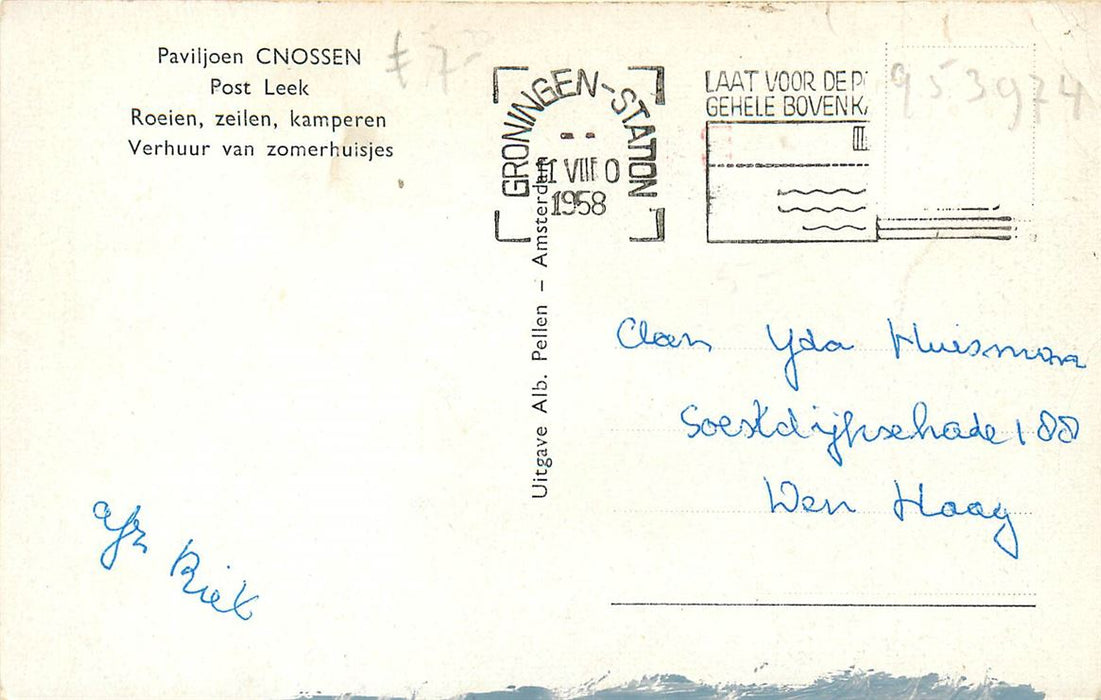 Paviljoen CNOSSEN
Post Leek
Roeien, zeilen, kamperen
Verhuur van zomerhuisjes
€ 7-
GRONINGEN-STATION
VIII 0
1958
LAAT VOOR DE P
GEHELE BOVENKA
953974
Uitgave Alb. Pellen – Amsterdam
Aan Yda Huisman
Soestdijksekade 188
Den Haag
afz
Riek